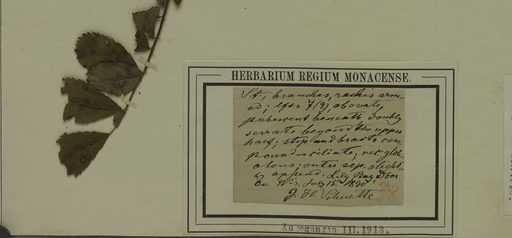 HERBARIUM REGIUM MONACENSE.
St., branches, rachis arm-
ed; lfts 7(9), obovate,
pubescent beneath, doubly
serrate beyond the upper
half; stip. and bracts
ciliate; rec. glob-
ulous; outer sep.
by append. Lily Bay, Door
Co. Wis. July 15. 1880
J. H. Schuette
Zugegangen III.1913.